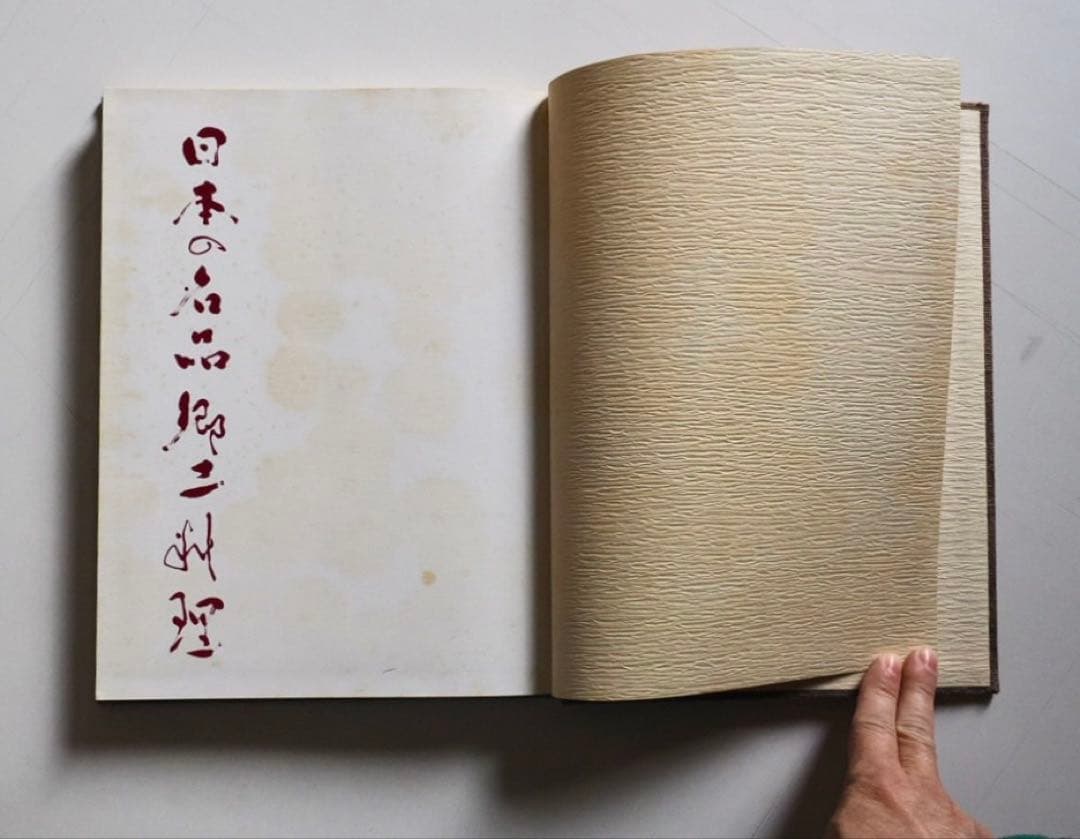 日本の名品郷土料理